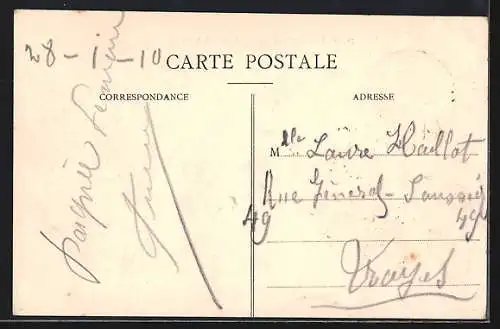 28-1-10
CARTE POSTALE
CORRESPONDANCE
ADRESSE
Mlle Laure Haillot
Rue Général-Saussier
49 49
Troyes